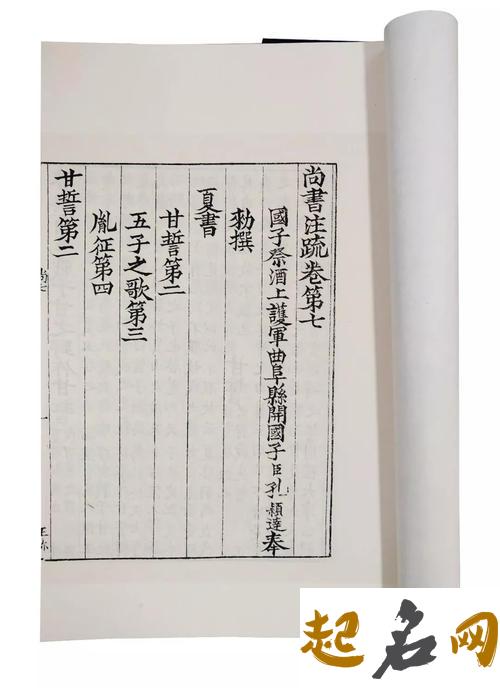 尚書注疏卷第七
國子祭酒上護軍曲阜縣開國子臣孔穎達奉
勑撰
夏書
甘誓第二
五子之歌第三
胤征第四
甘誓第二
一
起名网